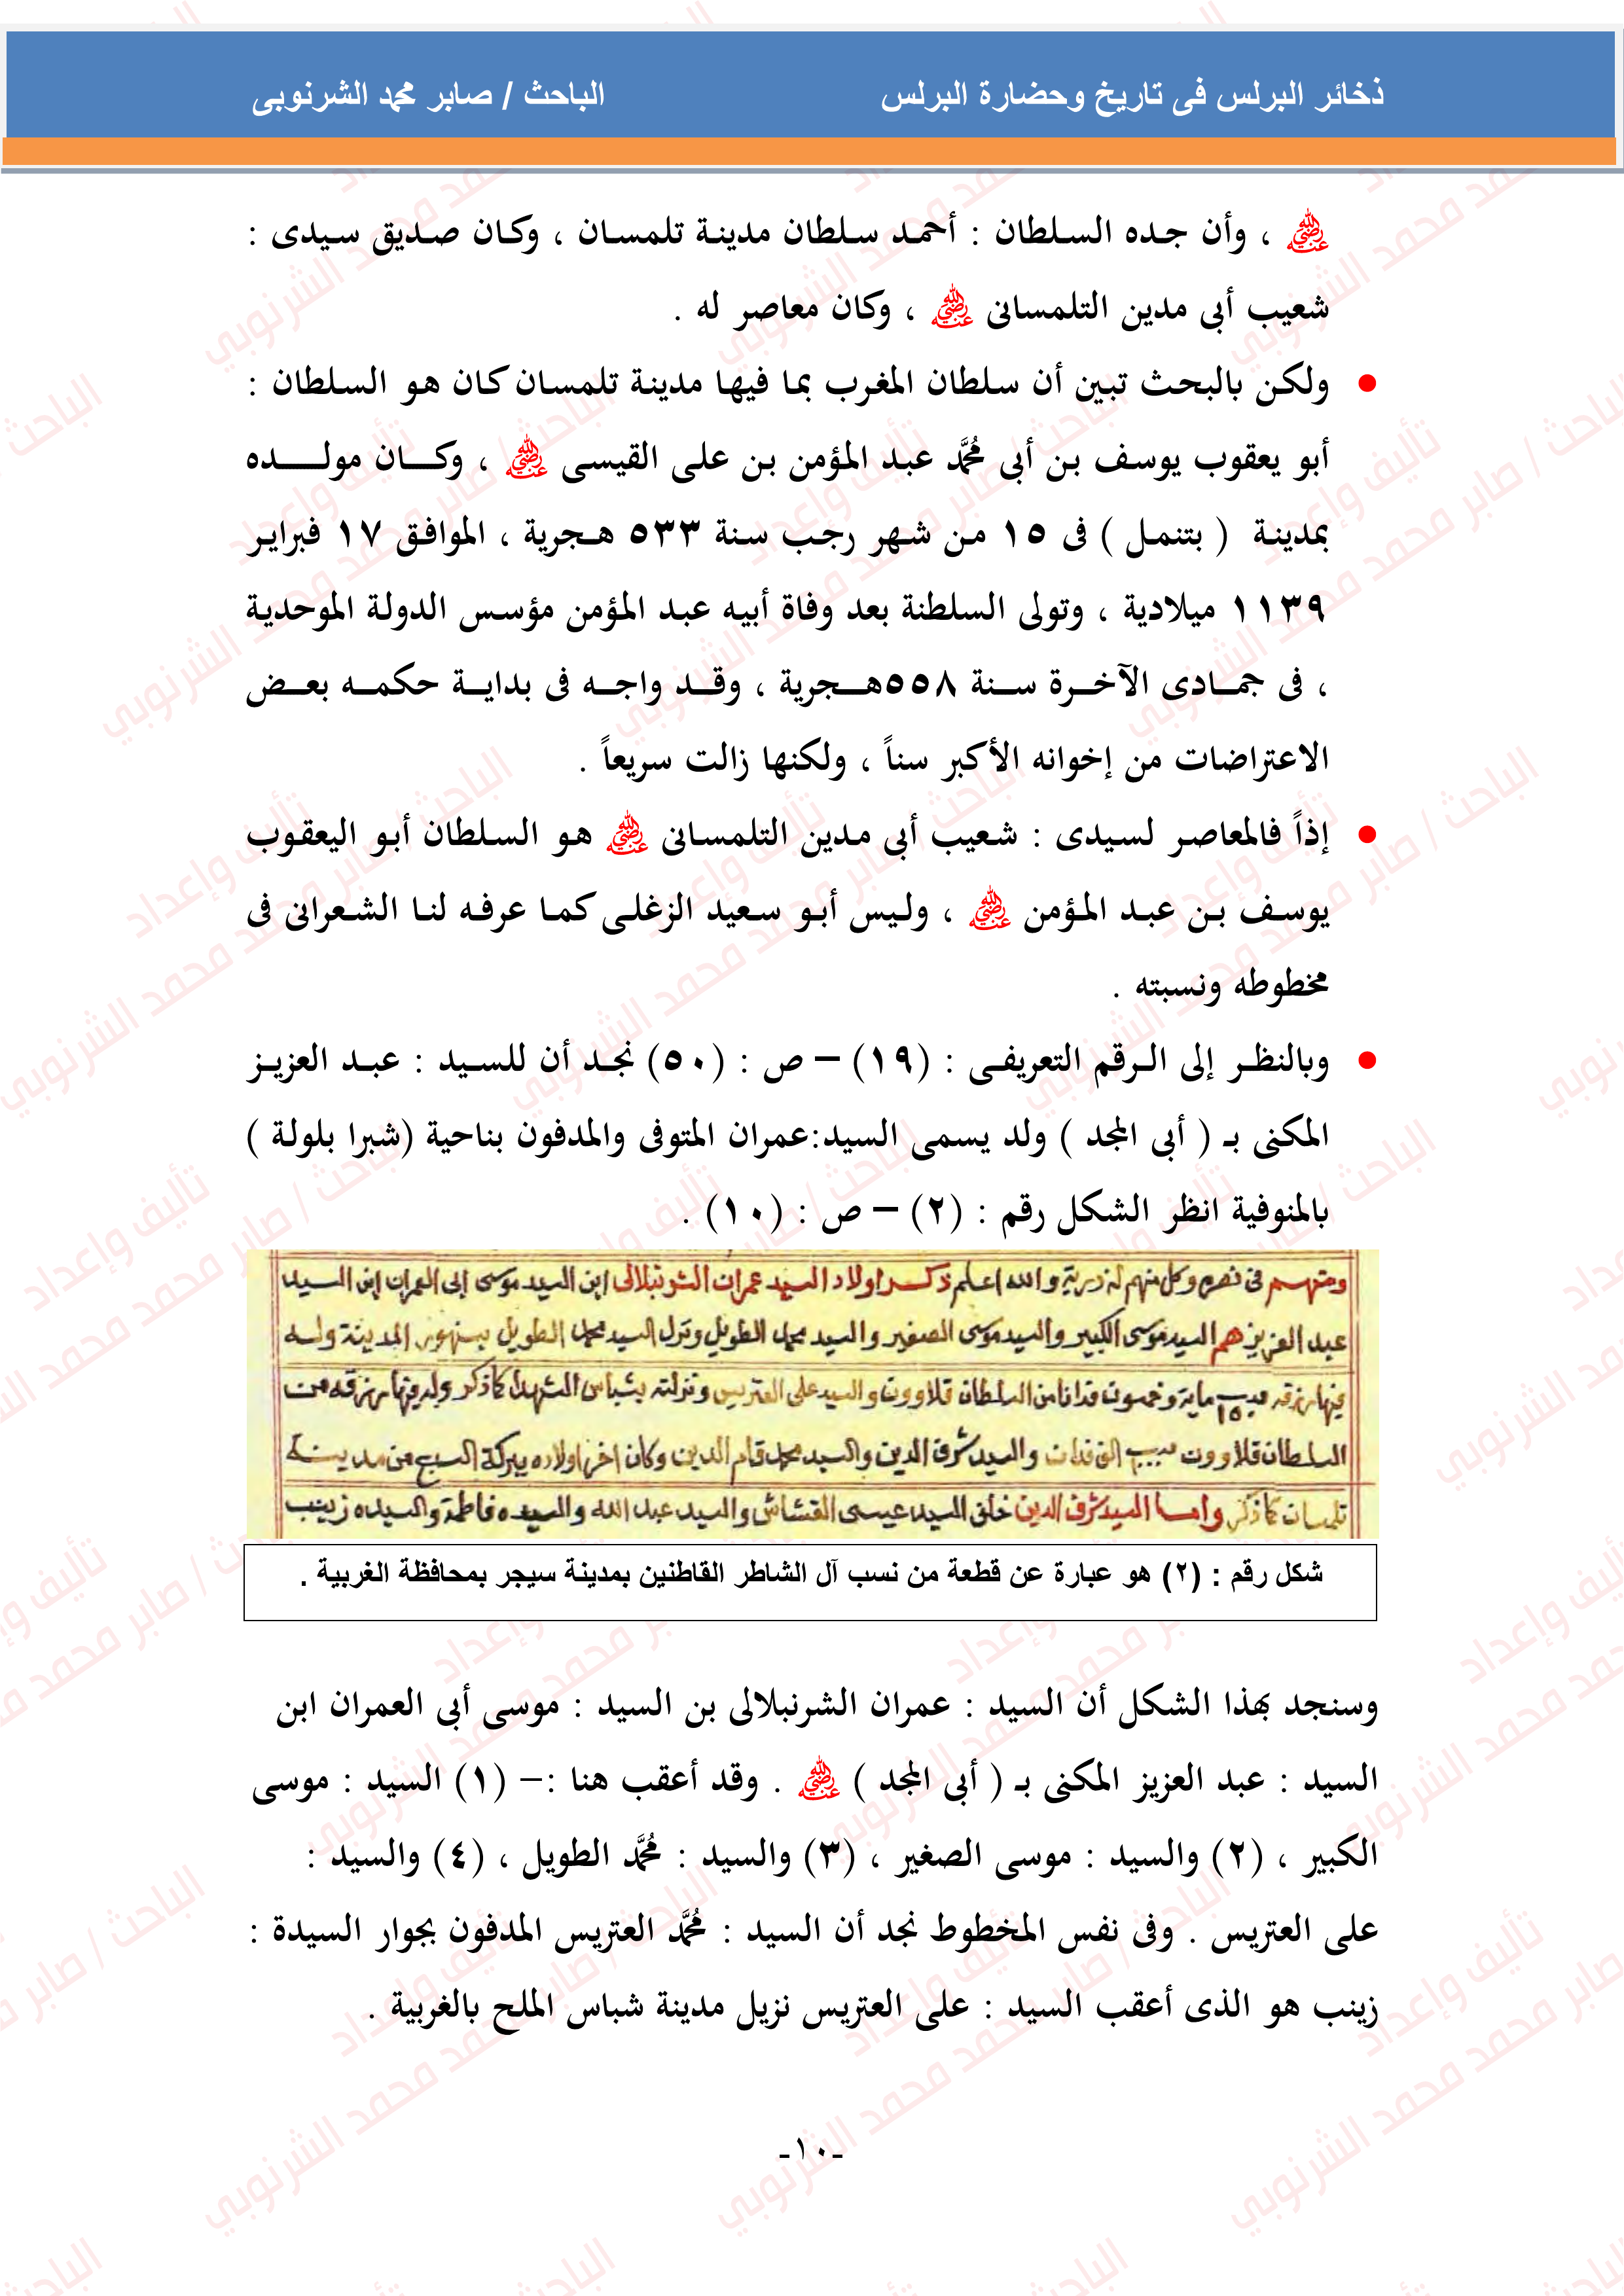 ذخائر البرلس فى تاريخ وحضارة البرلس الباحث / صابر محمد الشرنوبى
ﷲ رضي عنه ، وأن جده السلطان : أحمد سلطان مدينة تلمسان ، وكان صديق سيدى :
شعيب أبى مدين التلمسانى رضي الله عنه ، وكان معاصر له .
• ولكن بالبحث تبين أن سلطان المغرب بما فيها مدينة تلمسان كان هو السلطان :
أبو يعقوب يوسف بن أبى محمَّد عبد المؤمن بن على القيسى رضي الله عنه ، وكان مولده
بمدينة ( بتنمل ) فى ١٥ من شهر رجب سنة ٥٣٣ هجرية ، الموافق ١٧ فبراير
١١٣٩ ميلادية ، وتولى السلطنة بعد وفاة أبيه عبد المؤمن مؤسس الدولة الموحدية
، فى جمادى الآخرة سنة ٥٥٨هجرية ، وقد واجه فى بداية حكمه بعض
الاعتراضات من إخوانه الأكبر سناً ، ولكنها زالت سريعاً .
• إذاً فالمعاصر لسيدى : شعيب أبى مدين التلمسانى رضي الله عنه هو السلطان أبو اليعقوب
يوسف بن عبد المؤمن رضي الله عنه ، وليس أبو سعيد الزغلى كما عرفه لنا الشعرانى فى
مخطوطه ونسبته .
• وبالنظر إلى الرقم التعريفى : (١٩) – ص : (٥٠) نجد أن للسيد : عبد العزيز
المكنى بـ ( أبى المجد ) ولد يسمى السيد:عمران المتوفى والمدفون بناحية (شبرا بلولة )
بالمنوفية انظر الشكل رقم : (٢) – ص : (١٠) .
ومنهم فى نصره وكل منهم له ذرية والله اعلم ذكر اولاد السيد عمران الشرنبلالى ابن السيد موسى ابى العمران ابن السيد
عبد العزيز هم السيد موسى الكبير والسيد موسى الصغير والسيد محمد الطويل ونزل السيد محمد الطويل بسنهور المدينة وله
فيها رزقه ماية وخمسون فدانا من السلطان قلاوون والسيد على العتريس ونزلته بشباس الشهدا كما ذكر وله فيها رزقه من
السلطان قلاوون الف فدان والسيد شرف الدين والسيد محمد قام الدين وكان اخر اولاده ببركة السبع من مدينة
تلمسان كما ذكر واما السيد شرف الدين خلف السيد عيسى القشاش والسيد عبد الله والسيده فاطمة والسيده زينب
شكل رقم : (٢) هو عبارة عن قطعة من نسب آل الشاطر القاطنين بمدينة سيجر بمحافظة الغربية .
وسنجد بهذا الشكل أن السيد : عمران الشرنبلالى بن السيد : موسى أبى العمران ابن
السيد : عبد العزيز المكنى بـ ( أبى المجد ) رضي الله عنه . وقد أعقب هنا :– (١) السيد : موسى
الكبير ، (٢) والسيد : موسى الصغير ، (٣) والسيد : محمَّد الطويل ، (٤) والسيد :
على العتريس . وفى نفس المخطوط نجد أن السيد : محمَّد العتريس المدفون بجوار السيدة :
زينب هو الذى أعقب السيد : على العتريس نزيل مدينة شباس الملح بالغربية .
-١٠-
تأليف وإعداد
الباحث / صابر محمد محمد الشرنوبي